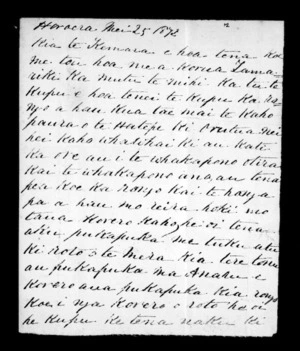 Horoera Mei 25 1872
Kia te Kemara e hoa tena koe
me tou hoa me a korua Tama
riki Ka mutu te mihi Ka tu te
Kupu e hoa tenei te kupu Ka ro
ngo a hau kua tae mai te Kaho
paura o te Hatepe ki
nei kaho whatihai ki au kati
Ka ore au i te whakapono otira
Kai te whakapono ano au tena
pea koe Ka rongo kai te hanga
pa a hau mo reira hoki mo
taua Korero Kahore oi tena
atu pukapuka me tuku atu
Ki roto o te Mera Kia tere tonu
au pukapuka ma Anaru e
Korero aua pukapuka Kia rongo
Koe i nga Korero o roto heoi
he Kupu ke tena naku ki